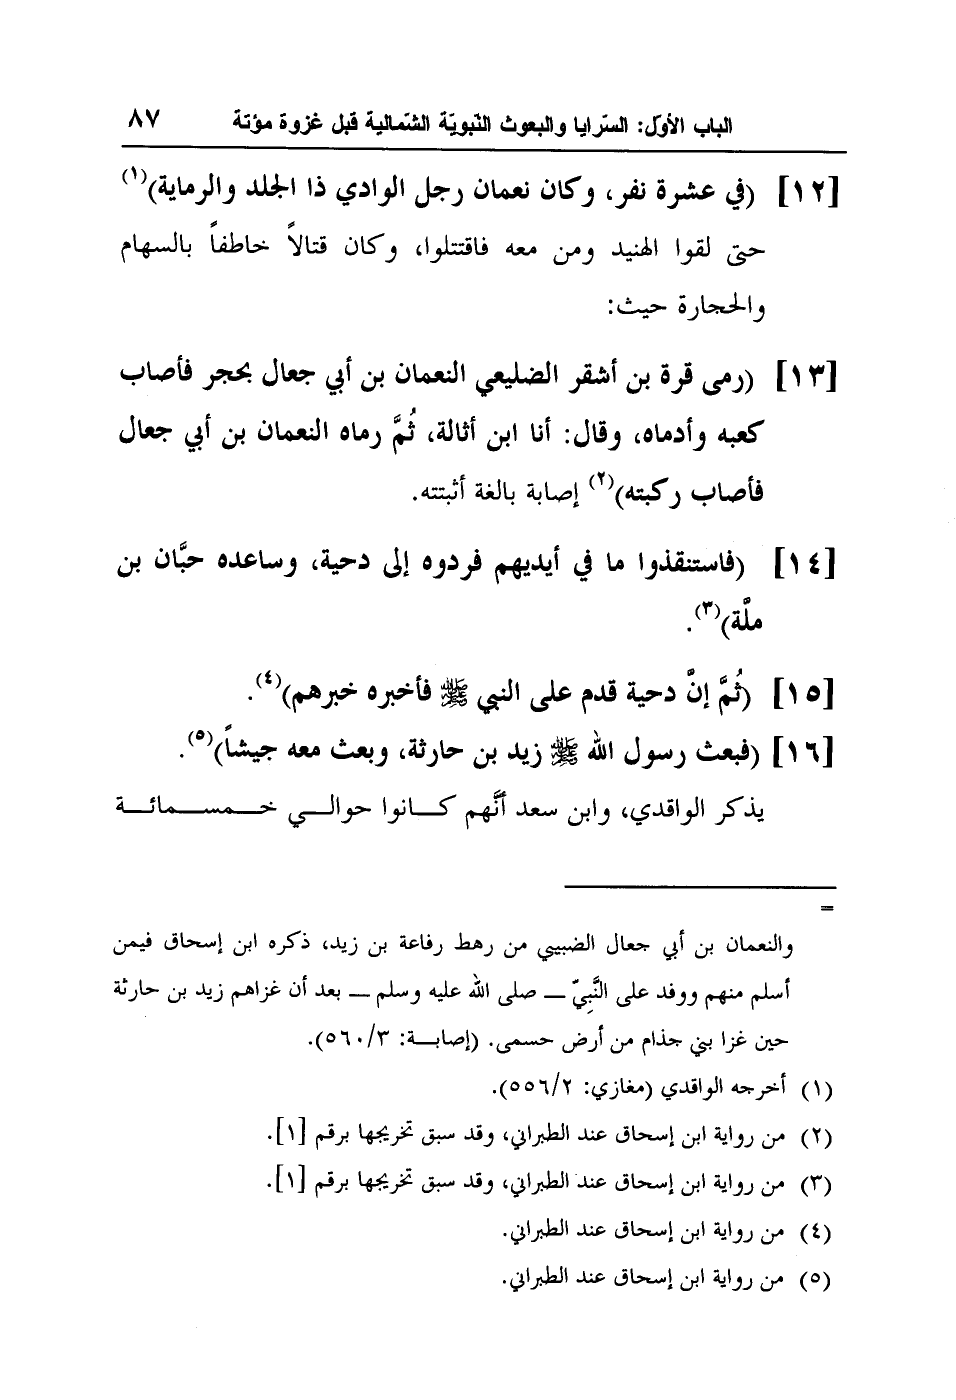 الباب الأوّل: السّرايا والبعوث النّبويّة الشّمالية قبل غزوة مؤتة ٨٧
[١٢] (في عشرة نفر، وكان نعمان رجل الوادي ذا الجلد والرماية)(١)
حتى لقوا الهنيد ومن معه فاقتتلوا، وكان قتالاً خاطفاً بالسهام
والحجارة حيث:
[١٣] (رمى قرة بن أشقر الضليعي النعمان بن أبي جعال بحجر فأصاب
كعبه وأدماه، وقال: أنا ابن أثالة، ثُمَّ رماه النعمان بن أبي جعال
فأصاب ركبته)(٢) إصابة بالغة أثبتته.
[١٤] (فاستنقذوا ما في أيديهم فردوه إلى دحية، وساعده حبَّان بن
ملَّة)(٣).
[١٥] (ثُمَّ إنَّ دحية قدم على النبي ﷺ فأخبره خبرهم)(٤).
[١٦] (فبعث رسول الله ﷺ زيد بن حارثة، وبعث معه جيشاً)(٥).
يذكر الواقدي، وابن سعد أنَّهم كـانوا حوالـي خـمسـمائـة
=
والنعمان بن أبي جعال الضبيبي من رهط رفاعة بن زيد، ذكره ابن إسحاق فيمن
أسلم منهم ووفد على النَّبِيّ ــ صلى الله عليه وسلم ــ بعد أن غزاهم زيد بن حارثة
حين غزا بني جذام من أرض حسمى. (إصابـة: ٣/ ٥٦٠).
(١) أخرجه الواقدي (مغازي: ٢/ ٥٥٦).
(٢) من رواية ابن إسحاق عند الطبراني، وقد سبق تخريجها برقم [١].
(٣) من رواية ابن إسحاق عند الطبراني، وقد سبق تخريجها برقم [١].
(٤) من رواية ابن إسحاق عند الطبراني.
(٥) من رواية ابن إسحاق عند الطبراني.